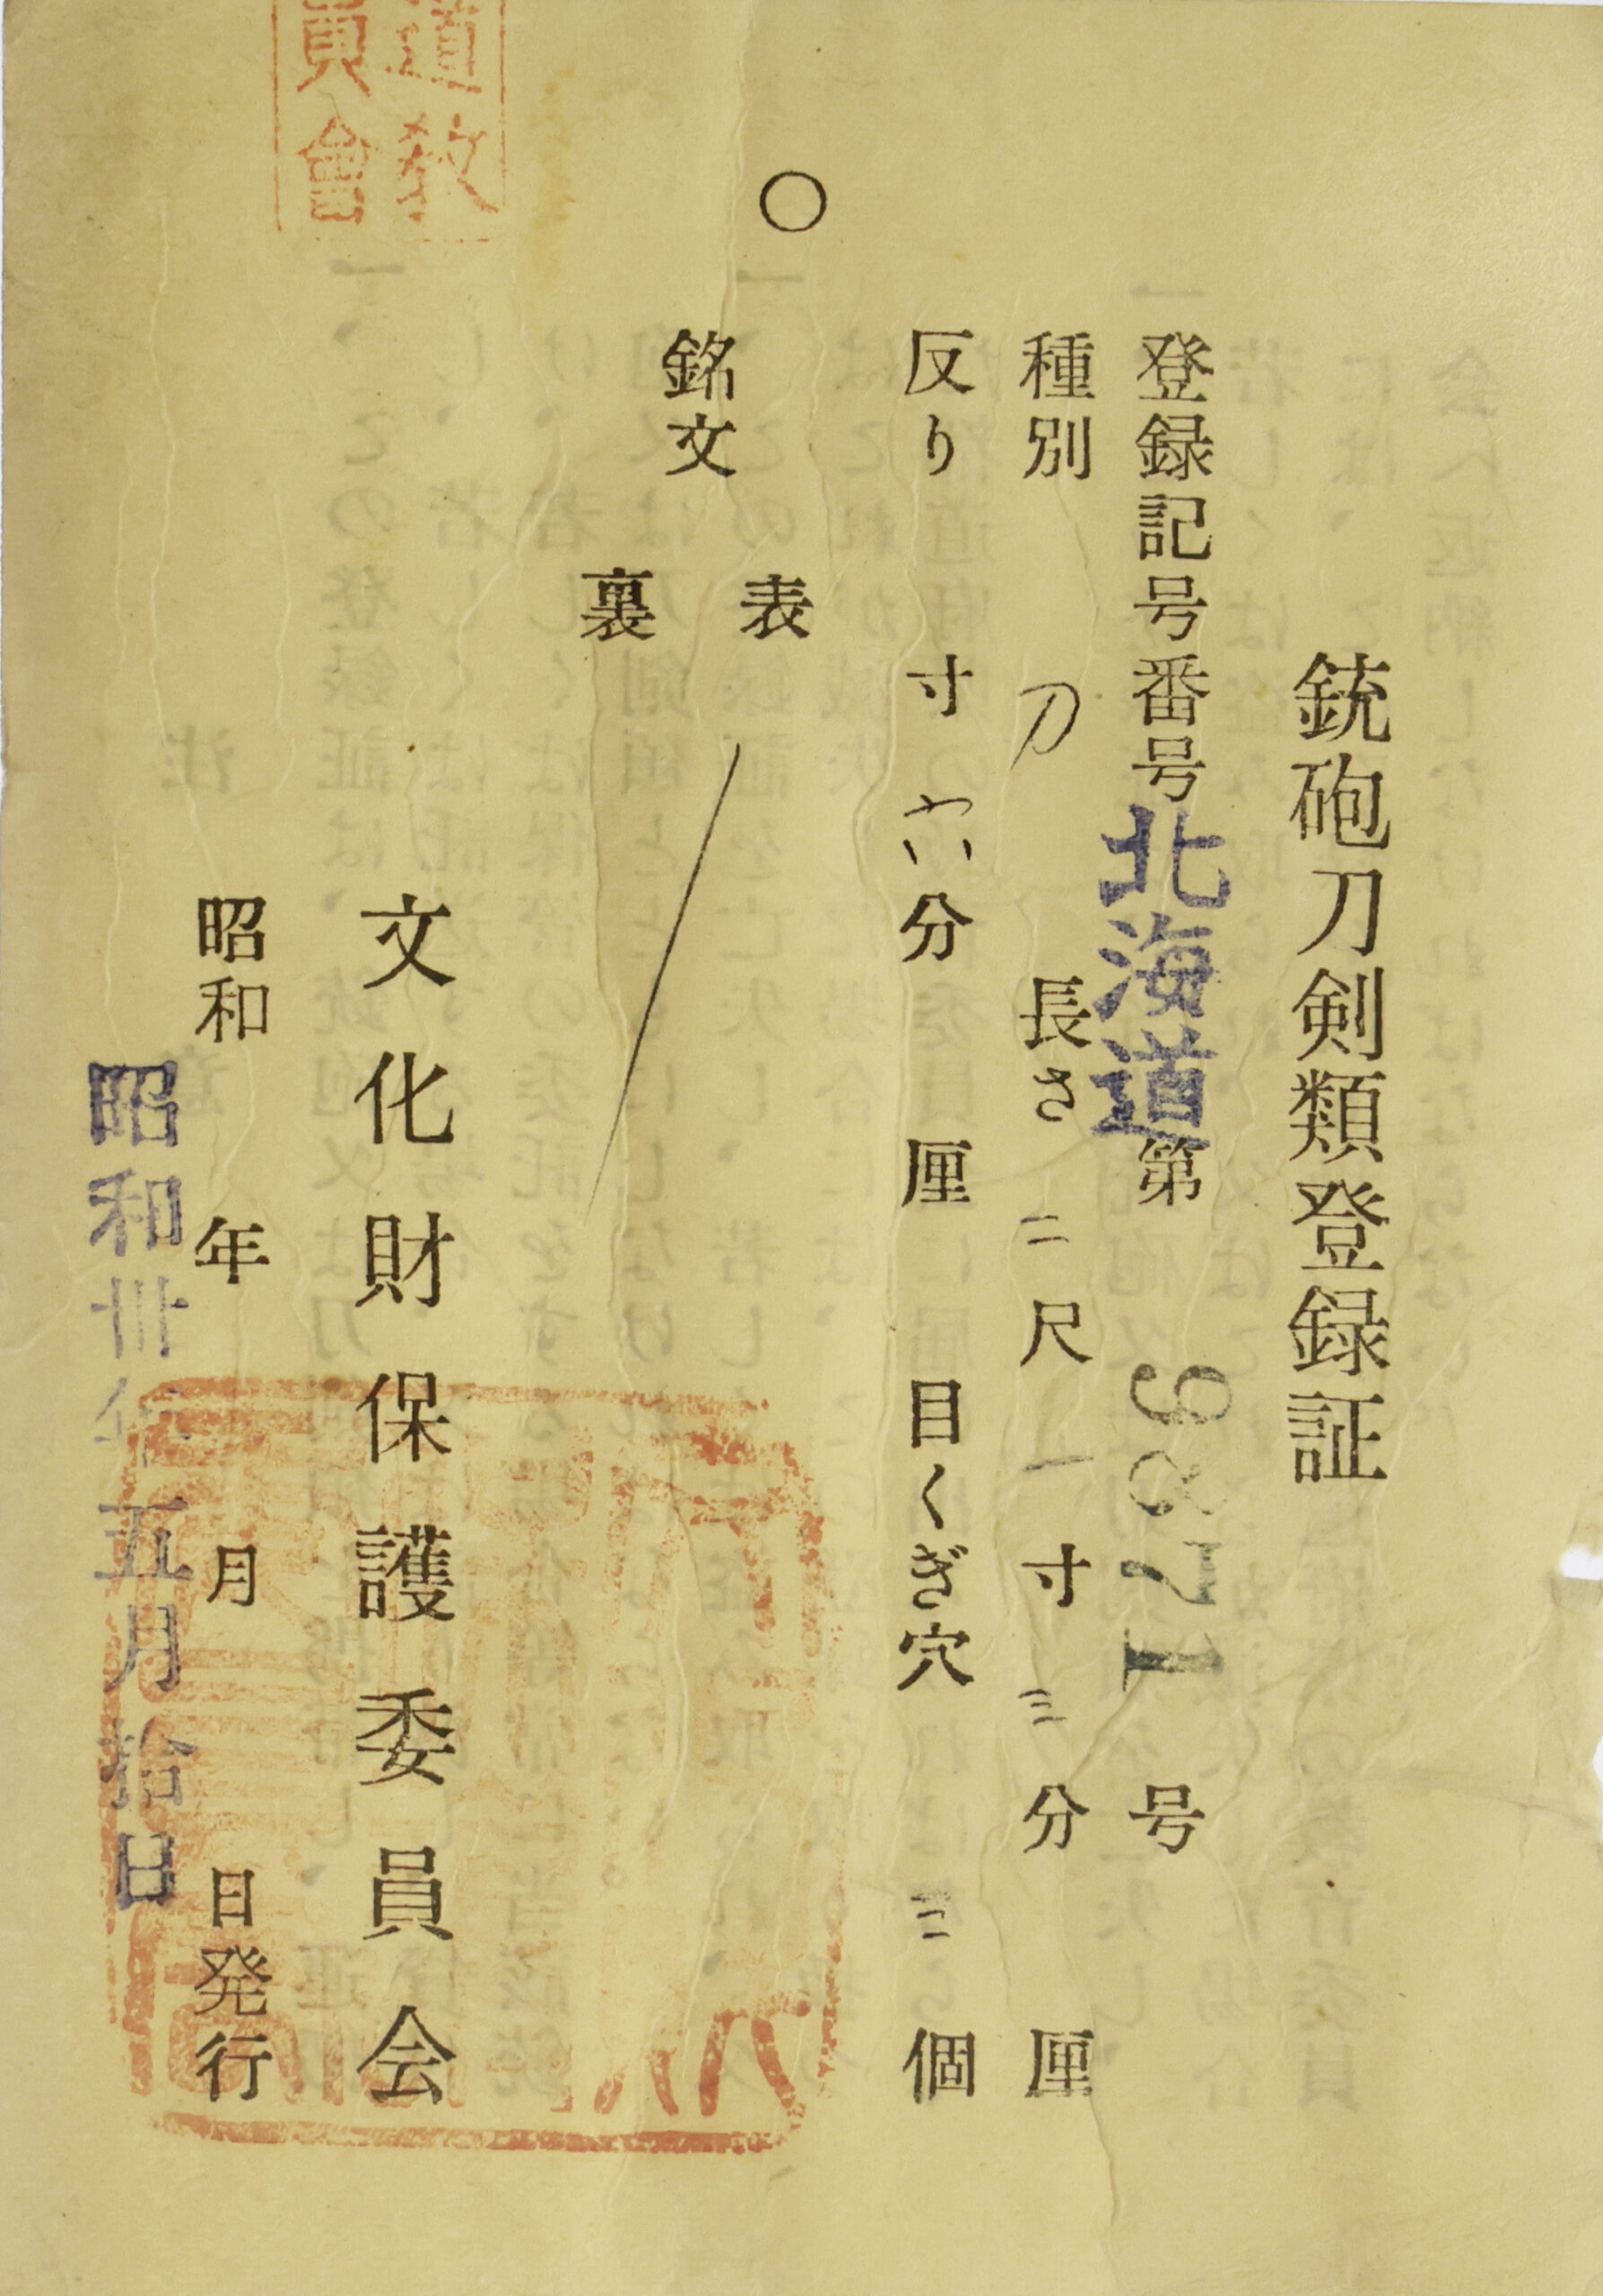 銃砲刀剣類登録証
登録記号番号 北海道 第 号
種別 刀 長さ 二尺一寸三分 厘
反り 寸六分 厘 目くぎ穴 三個
銘文
表
裏
文化財保護委員会
昭和 年 月 日発行
昭和卅年五月拾日
道教
員會